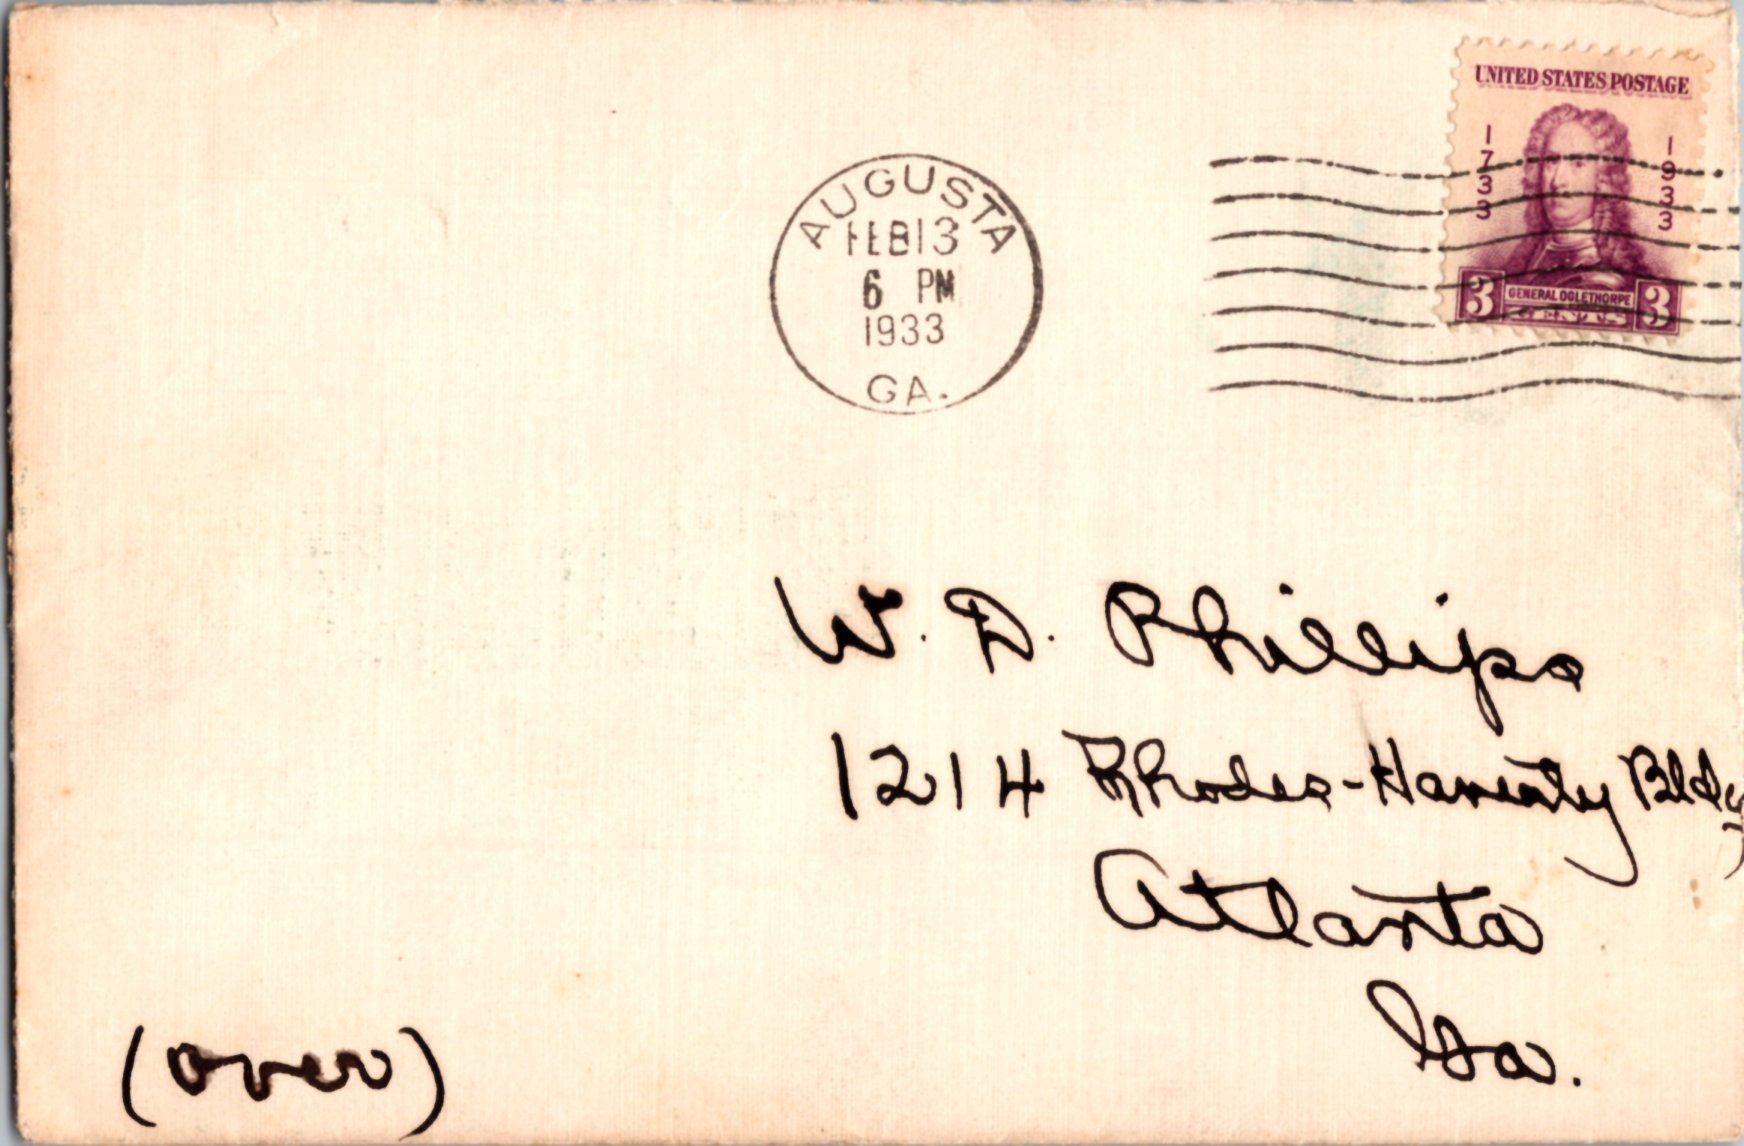 UNITED STATES POSTAGE
1733 1933
3 GENERAL OGLETHORPE 3
CENTS
AUGUSTA
FEB 13
6 PM
1933
GA.
W. D. Phillips
1214 Rhodes-Haverty Bldg
Atlanta
Ga.
(over)